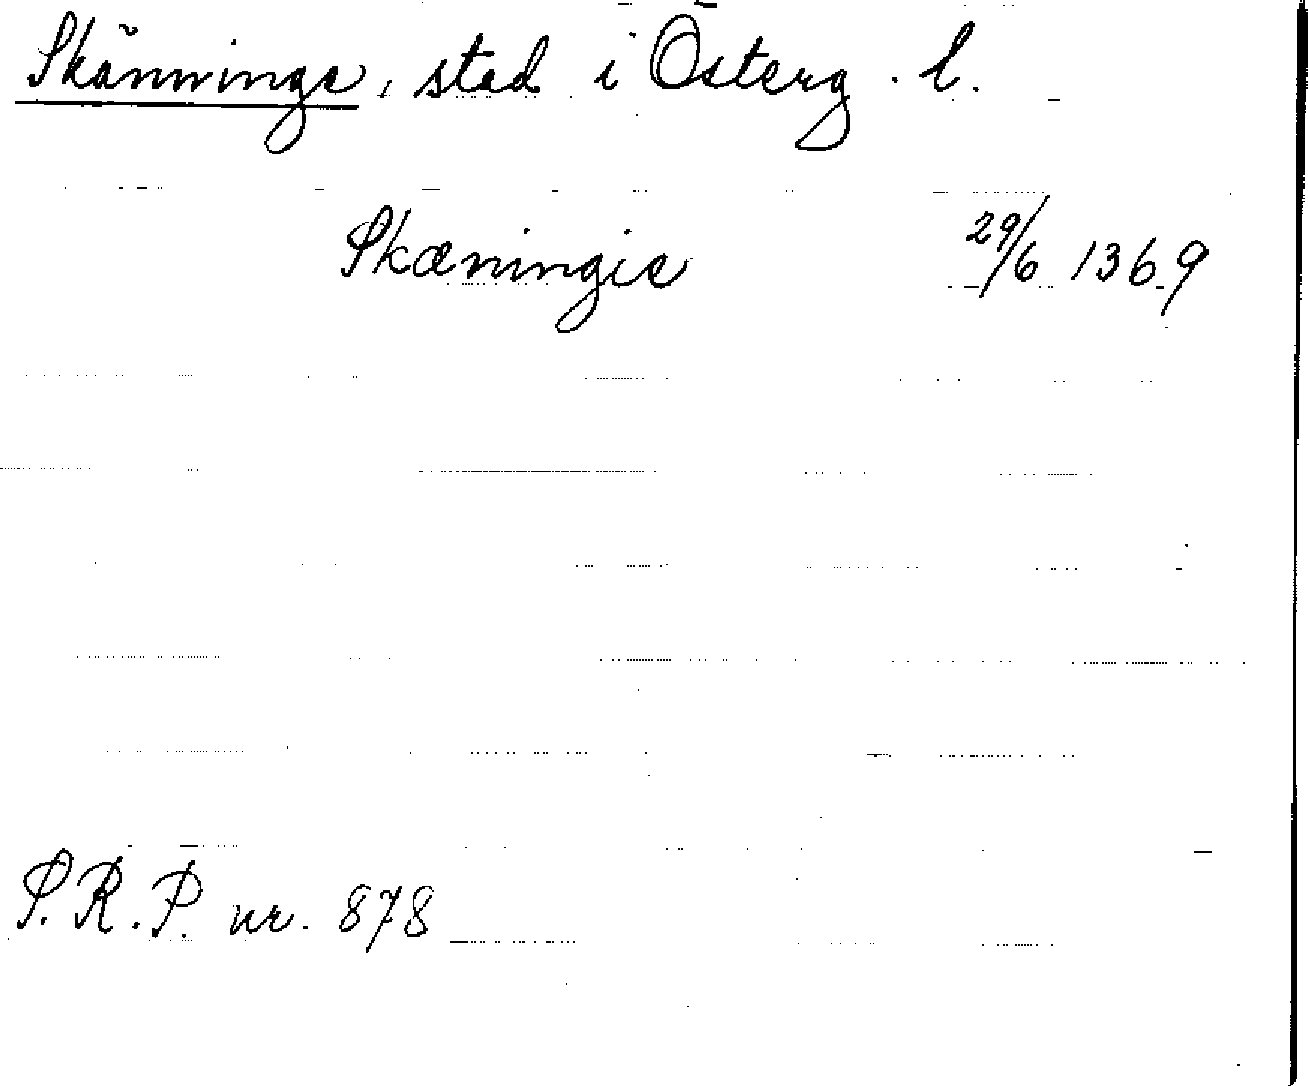 Skänninge, stad i Österg. l.
Skæningie 29/6 1369
S.R.P. nr. 878